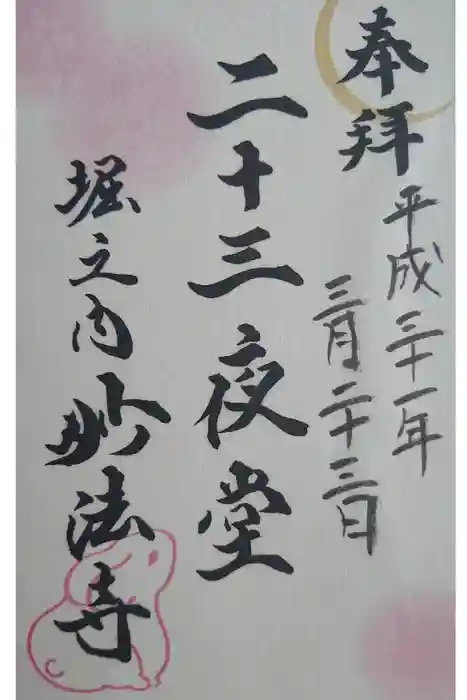 奉拝
平成三十一年
三月二十三日
二十三夜堂
堀之内妙法寺